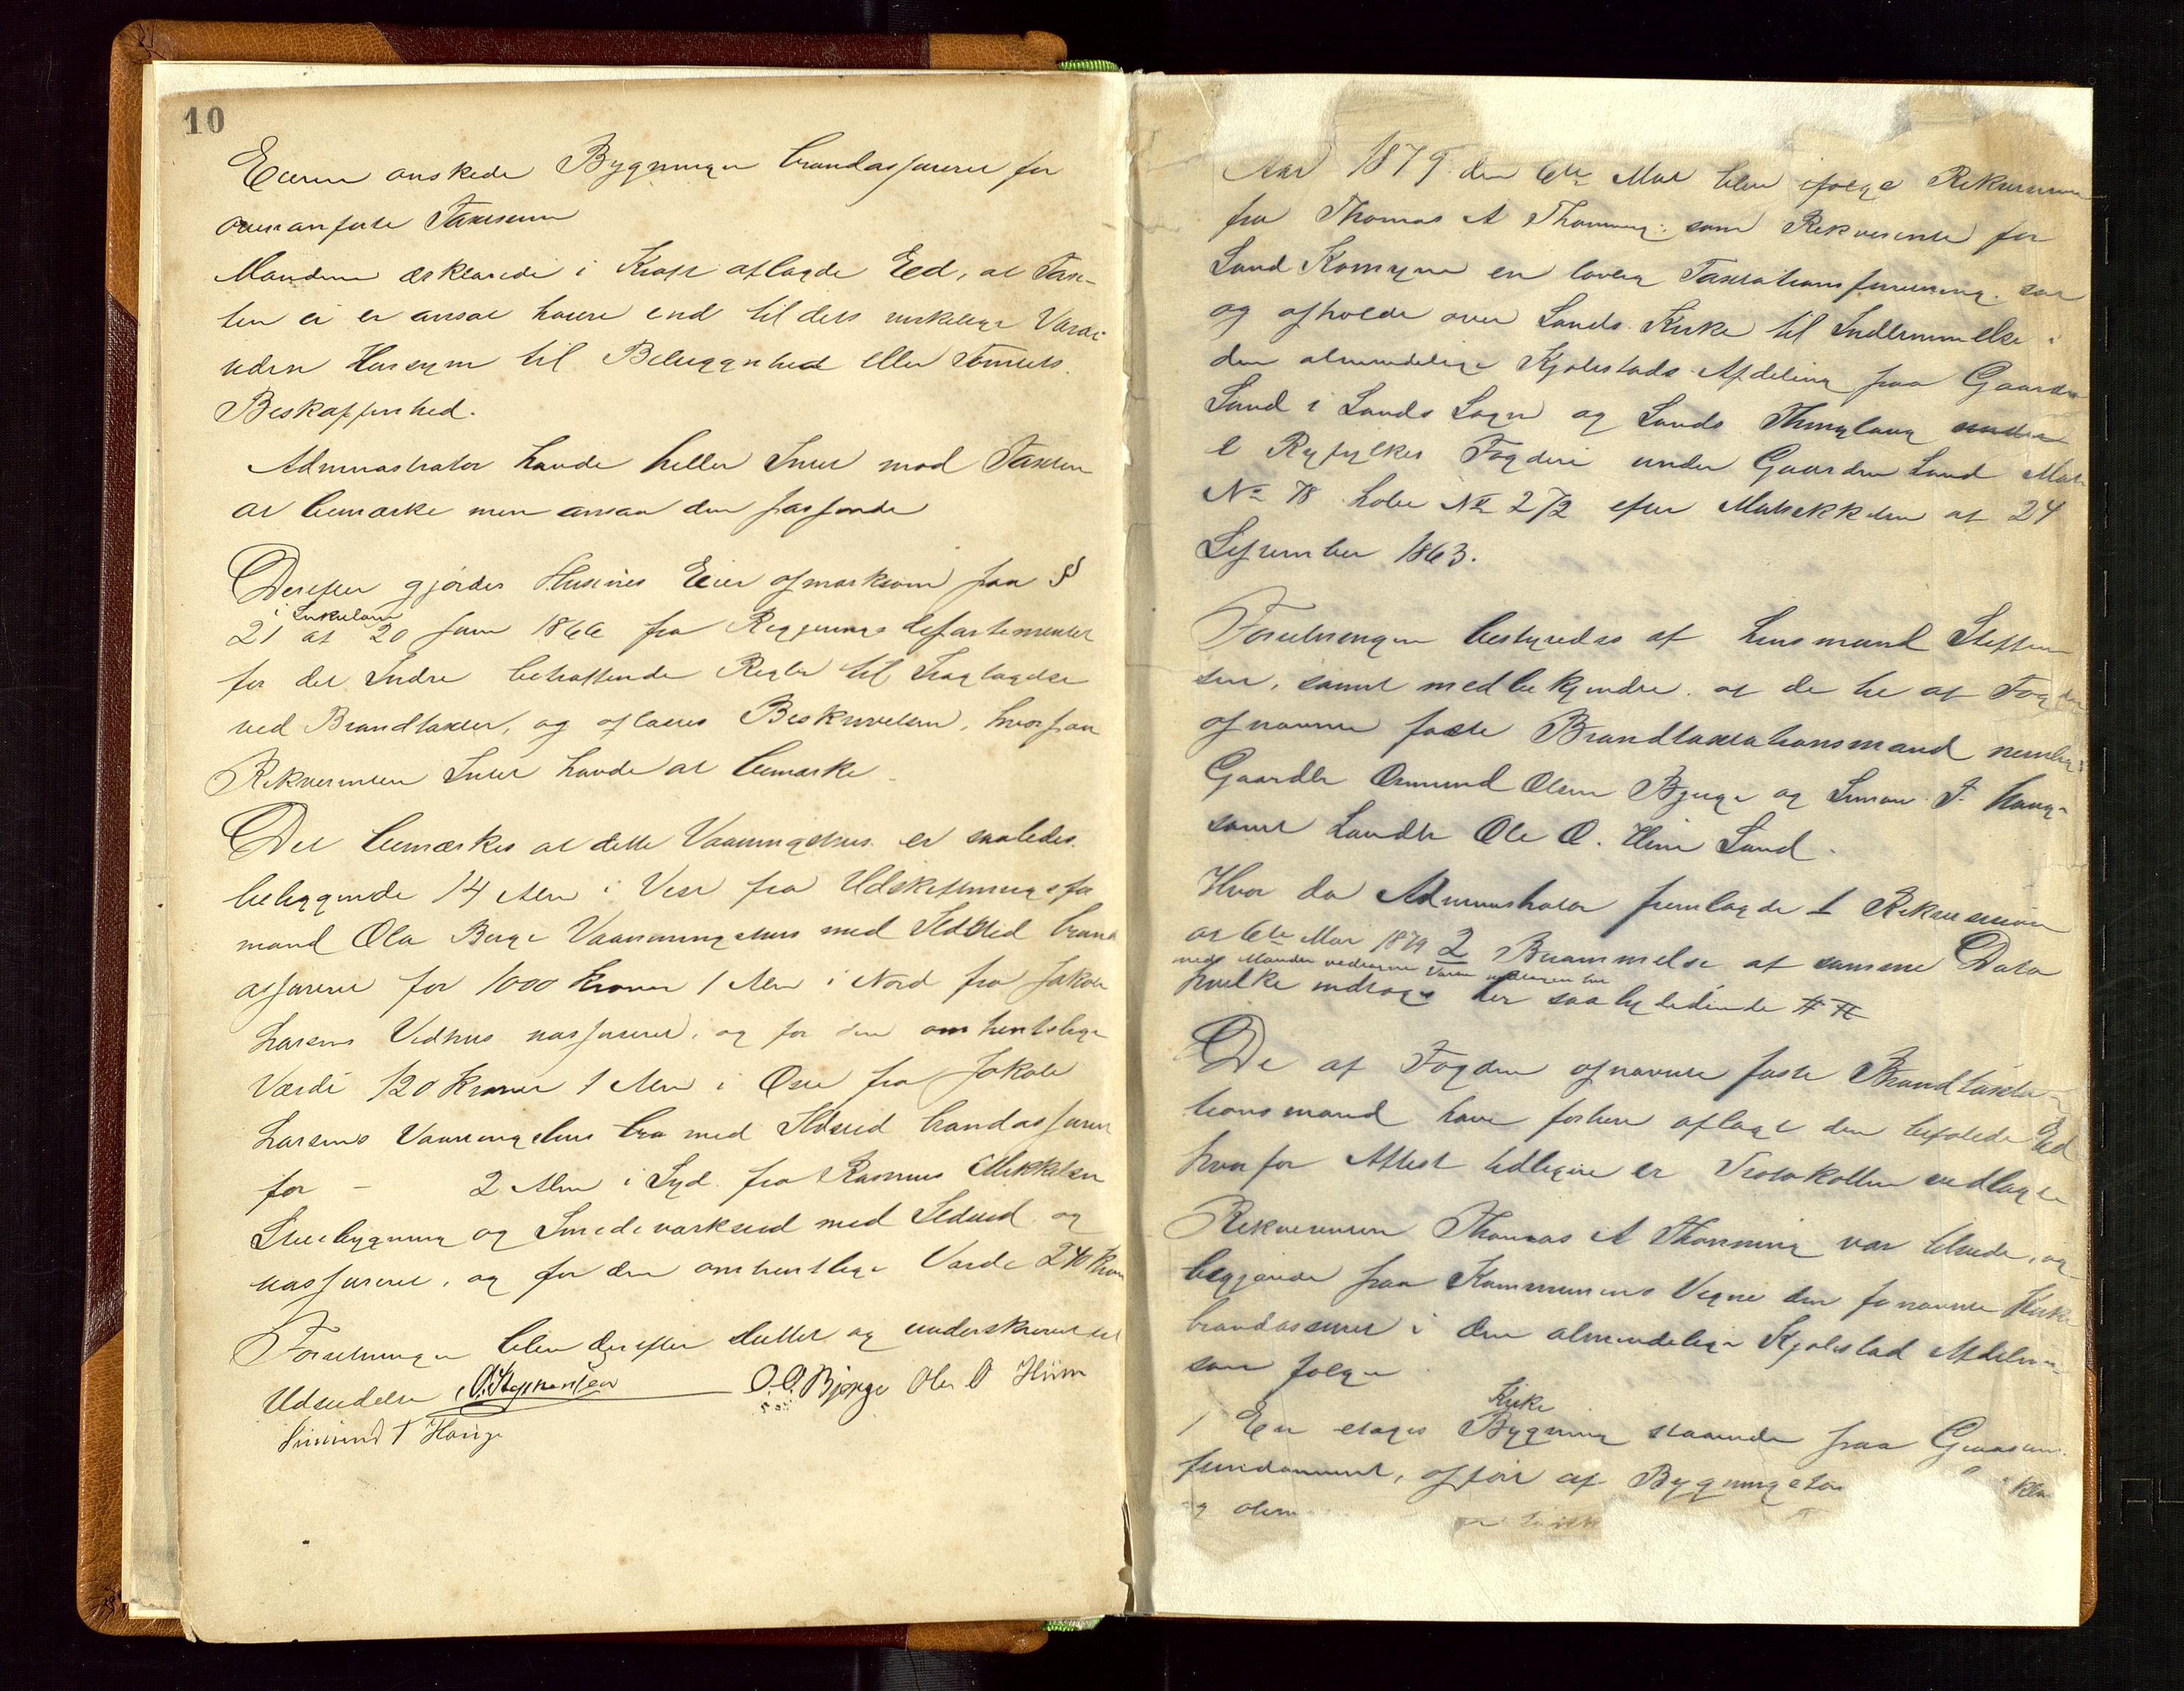 10
Eieren ønskede Bygningen brandassureret for
ovenanførte Taxtsum
Mændene erklærede i Kraft aflagde Eed, at Tax-
ten ei er ansat høiere end til dets virkelige Værdi
uden Hensyn til Beliggenhed eller Tomtets
Beskaffenhed.
Administrator havde heller Intet mod Taxten
at bemærke men ansaa den passende
Derefter gjordes Husenes Eier opmærksom paa §
i Sirkulære
21 af 20 Juni 1866 fra Regjerings departementet
for det Indre betræffende Regler til Iagtagelse
ved Brandtaxter, og oplæstes Beskrivelsen, hvorpaa
Rekvirenten Intet havde at bemærke
Det bemærkes at dette Vaaningshus er saaledes
beliggende 14 Alen i Vest fra Udskiftningsfor
mand Ola Berge Vaaningshus med Ildsted brand
assureret for 1000 Kroner 1 Alen i Nord fra Jakob
Larsens Vedhus uassureret, og for den omhentlige
Værdi 120 Kroner 1 Alen i Øst fra Jakob
Larsens Vaaningshus med Ildsted brandassureret
for - 2 Alen i Syd fra Rasmus Mikkelsen
Stuebygning og Smedeværksted med Ildsted og
uassureret, og for den omhentlige Værdi 240 Kron
Forretningen blev derefter sluttet og underskrevet til
Udstedelse O. Steffensen O. O. Bjørge Ole O Hiim
Simund T Hauge
Aar 1879 den 6te Mai blev ifølge Rekvisition
fra Thomas A Thorning som Rekvirent for
Sand Komune en lovlig Taxtationsforretning sat
og afholdt over Sands Kirke til Indlemmelse i
den almindelige Kjøbstads Afdeling paa Gaarden
Sand i Sands Sogn og Sands Thinglaug
i Ryfylkes Fogderi under Gaarden Sand Matr
No 78 Løbe No 272 efter Matrikkelen af 24
September 1863.
Forretningen bestyredes af Lensmand Steffen
sen, samt medbekjendte af de tre af Fogden
opnævnte faste Brandtaxtationsmænd nemlig
Gaardbr Osmund Olsen Bjerge og Simon T. Hauge
samt Landh Ole O. Hiim Sand.
Hvor da Administrator fremlagde 1 Rekvisition
af 6te Mai 1879 2 Berammelse af samme Dato
med Mænden
hvilke indtages her saa lydende # #
De af Fogden opnævnte faste Brandtaxta-
tionsmænd have forhen aflagt den befalede Ed
hvorfor Attest tidligere er Protokollen vedlagte
Rekvirenten Thomas A Thorning var tilstede, og
begjærede paa Kommunens Vegne den fornævnte Kirke
brandassureret i den almindelige Kjøbstad Afdeling
som følger
Kirke
1 En etages Bygning staaende paa Graasten
fundament, opført af Bygningstøm klæ
og olem